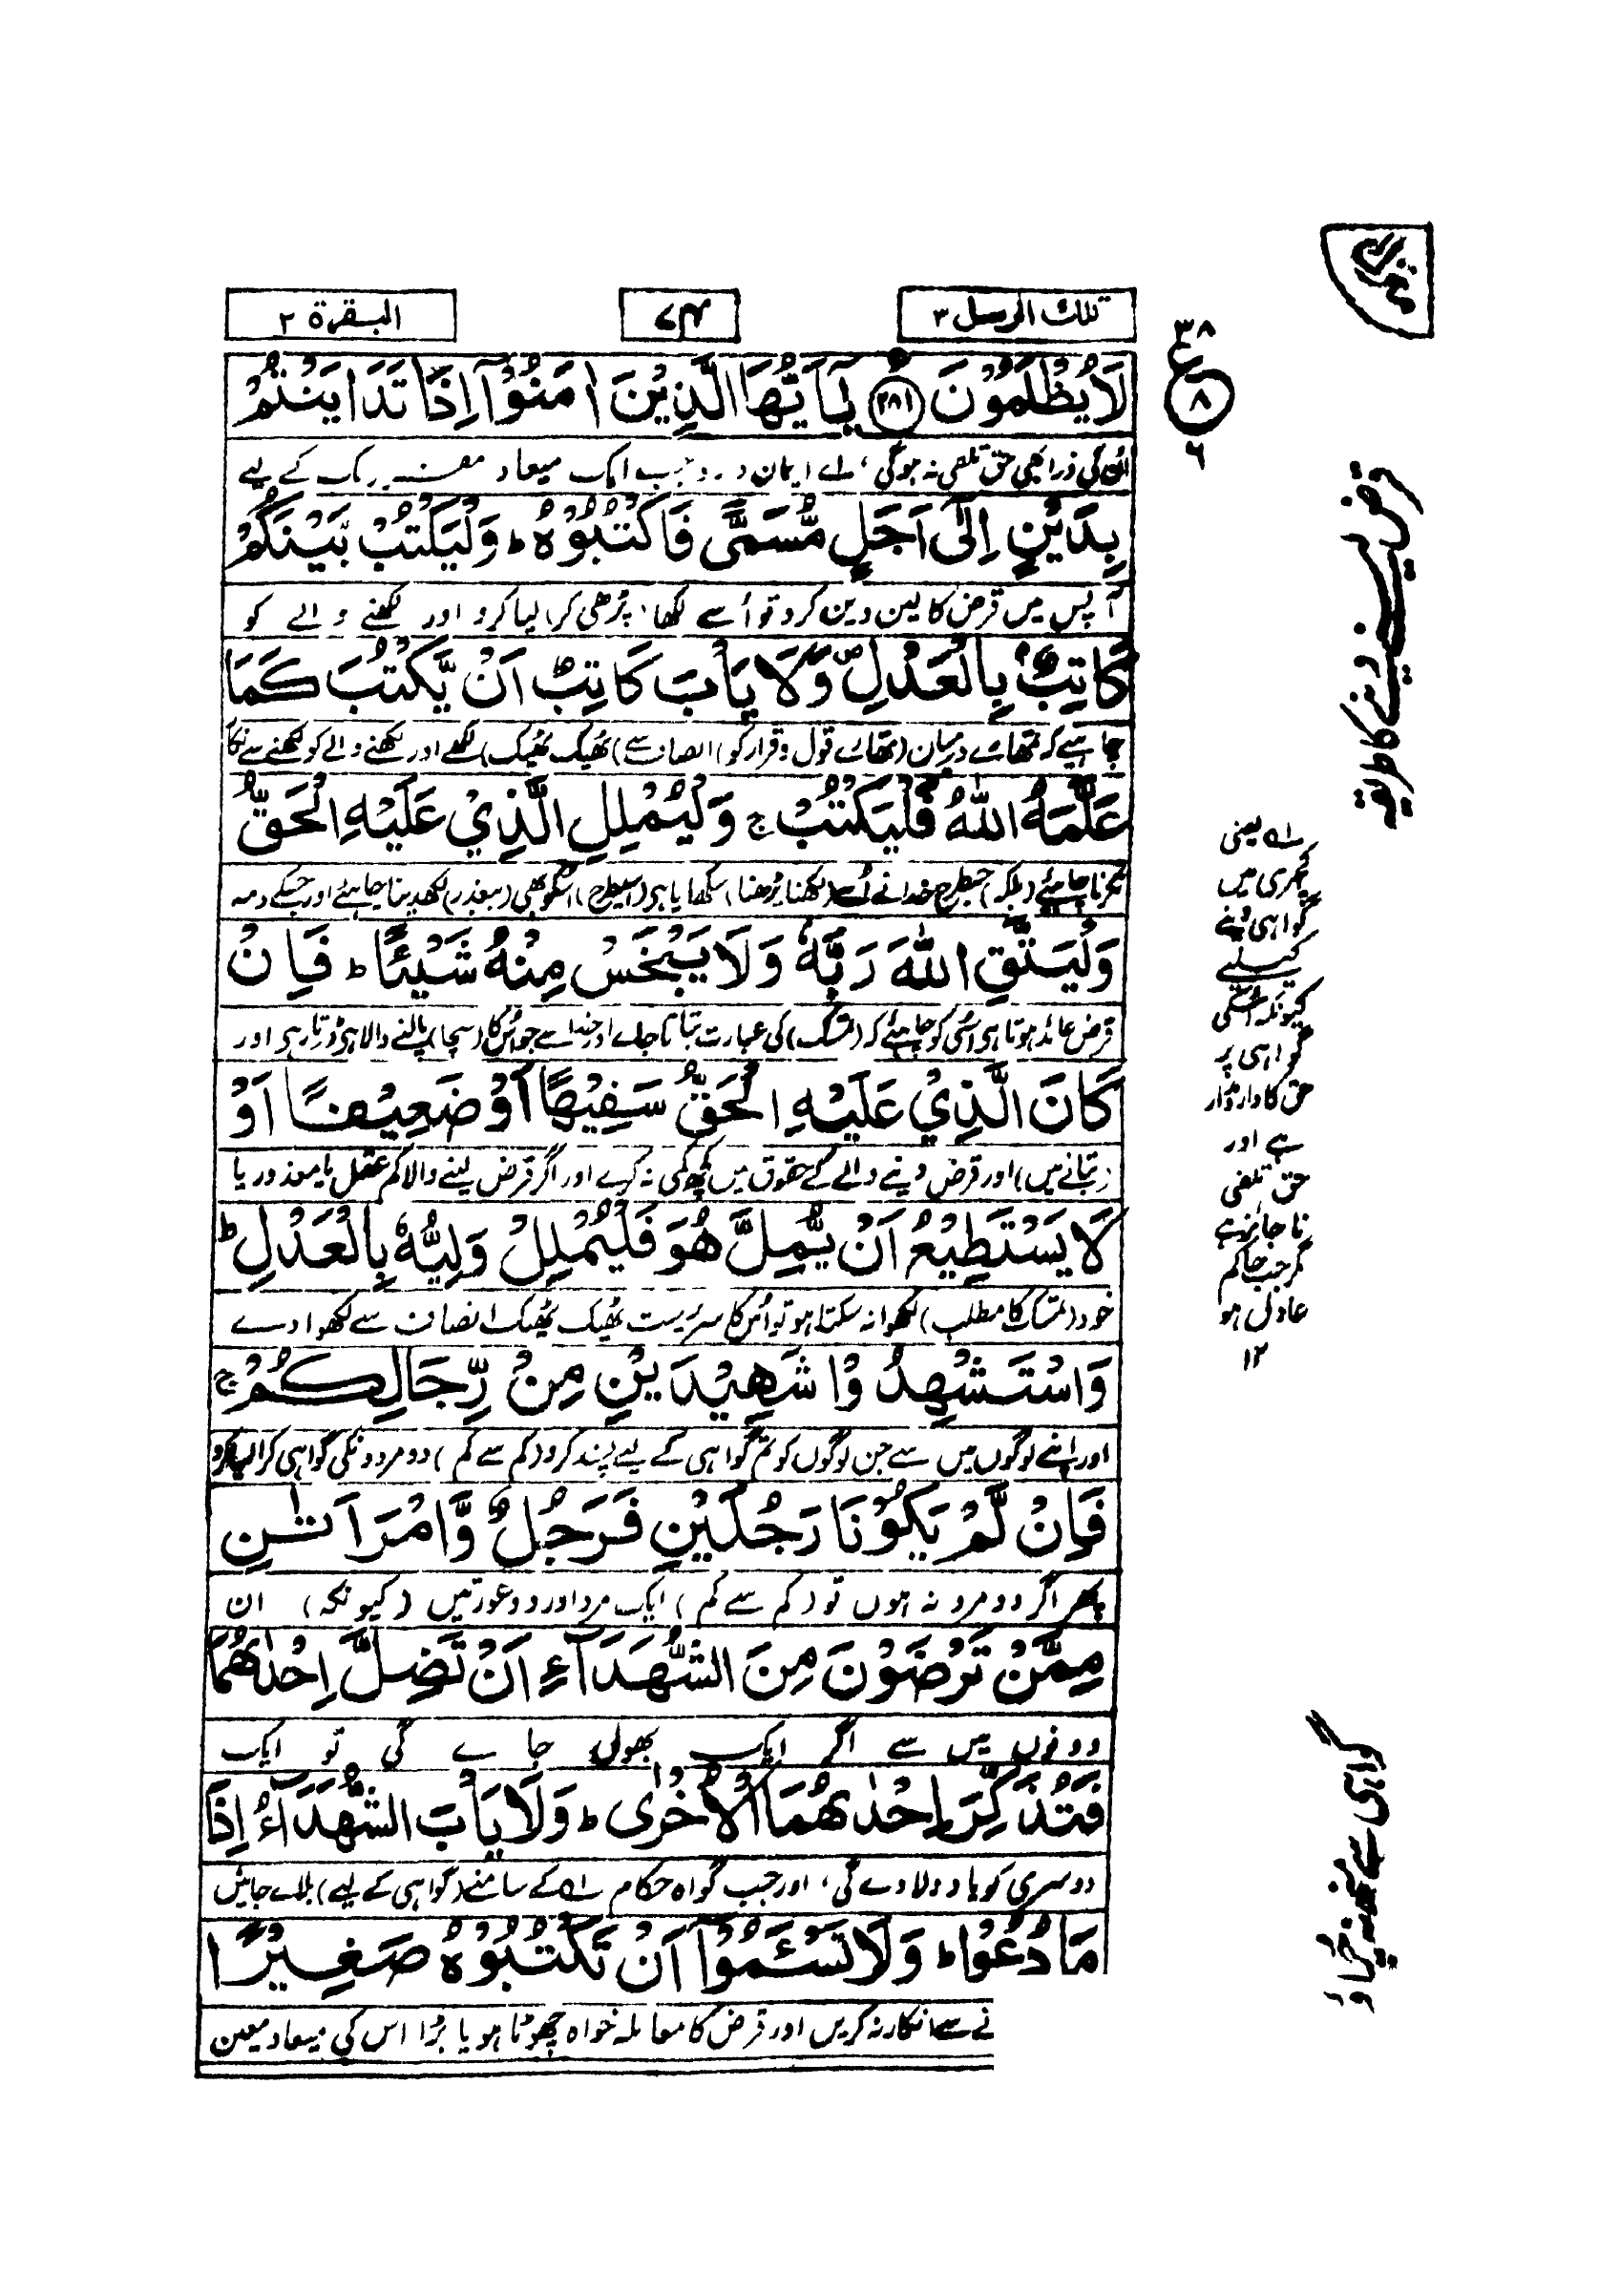 تلك الرسل ٣
٧٤
البقرة ٢
لَا يُظْلَمُوْنَ ﴿٢٨١﴾ يٰۤاَيُّهَا الَّذِيْنَ اٰمَنُوْۤا اِذَا تَدَايَنْتُمْ
ان کی ذرا بھی حق تلفی نہ ہوگی، اے ایمان دارو جب ایک میعاد مقررہ تک کے لیے
بِدَيْنٍ اِلٰۤى اَجَلٍ مُّسَمًّى فَاكْتُبُوْهُ ؕ وَلْيَكْتُبْ بَّيْنَكُمْ
آپس میں قرض کا لین دین کرو تو اُسے لکھا پڑھی کر لیا کرو اور لکھنے والے کو
كَاتِبٌۢ بِالْعَدْلِ ۪ وَلَا يَاْبَ كَاتِبٌ اَنْ يَّكْتُبَ كَمَا
چاہیے کہ تمھارے درمیان (تمھارے قول و قرار کو) انصاف سے (ٹھیک ٹھیک) لکھے اور لکھنے والے کو لکھنے سے انکار
عَلَّمَهُ اللّٰهُ فَلْيَكْتُبْ ۚ وَلْيُمْلِلِ الَّذِيْ عَلَيْهِ الْحَقُّ
نکرنا چاہئے (بلکہ) جسطرح خدا نے اُسے (لکھنا پڑھنا) سکھایا ہی (اسیطرح) اسکو بھی (بیعذر) لکھدینا چاہئے اور جسکے ذمہ
وَلْيَتَّقِ اللّٰهَ رَبَّهٗ وَلَا يَبْخَسْ مِنْهُ شَيْئًا ؕ فَاِنْ
قرض عائد ہوتا ہی اسی کو چاہیئے کہ (تمسک) کی عبارت بتاتا جاے اور خدا سے جو اُس کا (سچا) پالنے والا ہی ڈرتا رہی اور
كَانَ الَّذِيْ عَلَيْهِ الْحَقُّ سَفِيْهًا اَوْ ضَعِيْفًا اَوْ
(بتانے میں) اور قرض دینے والے کے حقوق میں کچھ کمی نہ کرے اور اگر قرض لینے والا کم عقل یا معذور یا
لَا يَسْتَطِيْعُ اَنْ يُّمِلَّ هُوَ فَلْيُمْلِلْ وَلِيُّهٗ بِالْعَدْلِ ؕ
خود (تمسک کا مطلب) لکھوا نہ سکتا ہو تو اُس کا سرپرست ٹھیک ٹھیک انصاف سے لکھوا دے
وَاسْتَشْهِدُوْا شَهِيْدَيْنِ مِنْ رِّجَالِكُمْ ۚ
اور اپنے لوگوں میں سے جن لوگوں کو تم گواہی کے لیے پسند کرو (کم سے کم) دو مردونکی گواہی کرا لیا کرو
فَاِنْ لَّمْ يَكُوْنَا رَجُلَيْنِ فَرَجُلٌ وَّامْرَاَتٰنِ
پھر اگر دو مرد نہ ہوں تو (کم سے کم) ایک مرد اور دو عورتیں (کیونکہ) ان
مِمَّنْ تَرْضَوْنَ مِنَ الشُّهَدَآءِ اَنْ تَضِلَّ اِحْدٰىهُمَا
دونوں میں سے اگر ایک بھول جاے گی تو ایک
فَتُذَكِّرَ اِحْدٰىهُمَا الْاُخْرٰى ؕ وَلَا يَاْبَ الشُّهَدَآءُ اِذَا
دوسری کو یاد دلا دے گی، اور جب گواہ حکام لہ کے سامنے (گواہی کے لیے) بلاے جائیں
مَا دُعُوْا ؕ وَلَا تَسْـَٔمُوْۤا اَنْ تَكْتُبُوْهُ صَغِيْرًا
نے سے انکار نہ کریں اور قرض کا معاملہ خواہ چھوٹا ہو یا بڑا اس کی میعاد معین
٣٨
ع
٨
٦
قرض لینے دینے کا طریقہ
لہ یعنی
کچہری میں
گواہی دینے
کیلئے
کیونکہ اسکی
گواہی پر
حق کا دارومدار
ہے اور
حق تلفی
ناجائز ہے
مگر جب حاکم
عادل ہو
١٢
گواہی سے منھ نہ چراؤ